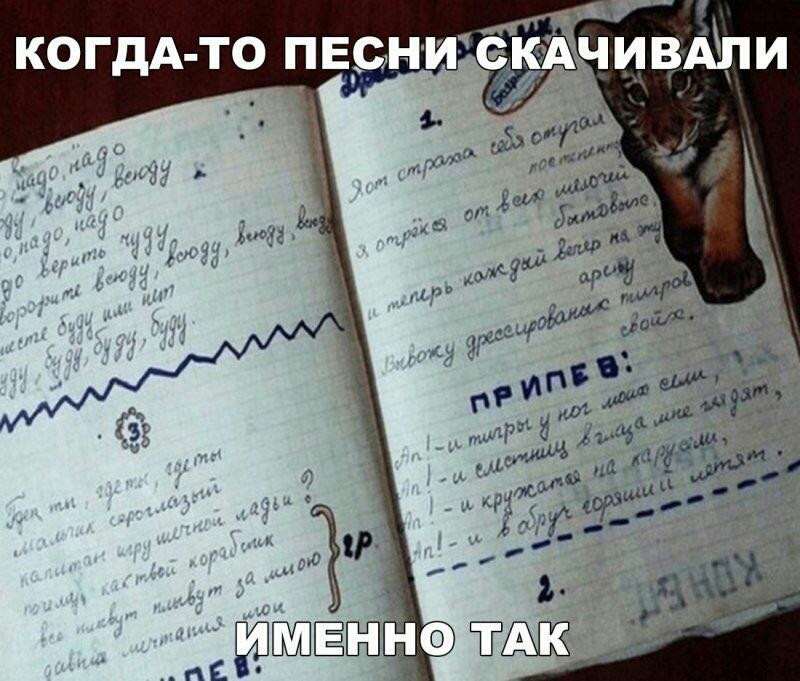 КОГДА-ТО ПЕСНИ СКАЧИВАЛИ
надо, надо
всюду, всюду
надо, надо
верить чуду
всюду, всюду, всюду, всюду
вместе буду или нет
буду, буду, буду, буду.
3
Где ты, где ты, где ты
мальчик сероглазый
капитан игрушечной ладьи?
почему, как твой кораблик
все плывут плывут за мною
давние мечтания мои
2р.
ПРИПЕВ:
1.
Я от страха себя отучал
постепенно,
Я отрёкся от всех мелочей
бытовых,
и теперь каждый вечер на эту
арену
Вывожу дрессированных тигров
своих.
ПРИПЕВ:
Ап! - и тигры у ног моих сели,
Ап! - и с лестниц в глаза мне глядят,
Ап! - и кружатся на карусели,
Ап! - и в обруч горящий летят.
2.
КОНЕЦ
ИМЕННО ТАК